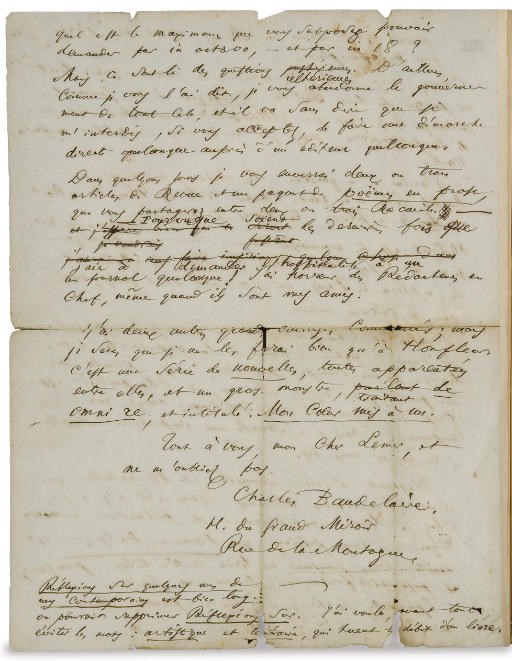 quel est le maximum que vous supposez pouvoir
demander par in octavo, — et par in 18 ?
Mais ce sont là des questions ultérieures. D'ailleurs,
comme je vous l'ai dit, je vous abandonne le gouverne-
ment de tout cela, et il va sans dire que je
m'interdis, si vous acceptez, de faire une démarche
directe quelconque auprès d'un éditeur quelconque.
Dans quelques jours je vous enverrai deux ou trois
articles de Revue et un paquet de poëmes en prose,
que vous partagerez entre deux ou trois Recueils. —
Pourvu que soient
et les derniers fois que
je voudrais
j'aie à demander l'hospitalité à un
un journal quelconque. J'ai horreur des Rédacteurs en
Chef, même quand ils sont mes amis.
J'ai deux autres grands ouvrages commencés ; mais
je sens que je ne les ferai bien qu'à Honfleur
c'est une série de nouvelles, toutes apparentées
entre elles, et un gros monstre, traitant de
omni re, et intitulé : Mon Cœur mis à nu.
Tout à vous, mon cher Lemer, et
ne m'oubliez pas.
Charles Baudelaire.
H. du Grand Miroir
Rue de la Montagne.
Réflexions sur quelques uns de
mes Contemporains est bien long.
on pourrait supprimer Réflexions sur. J'ai voulu avant tout
éviter les mots : artistique et littéraire, qui tuent le débit d'un livre.